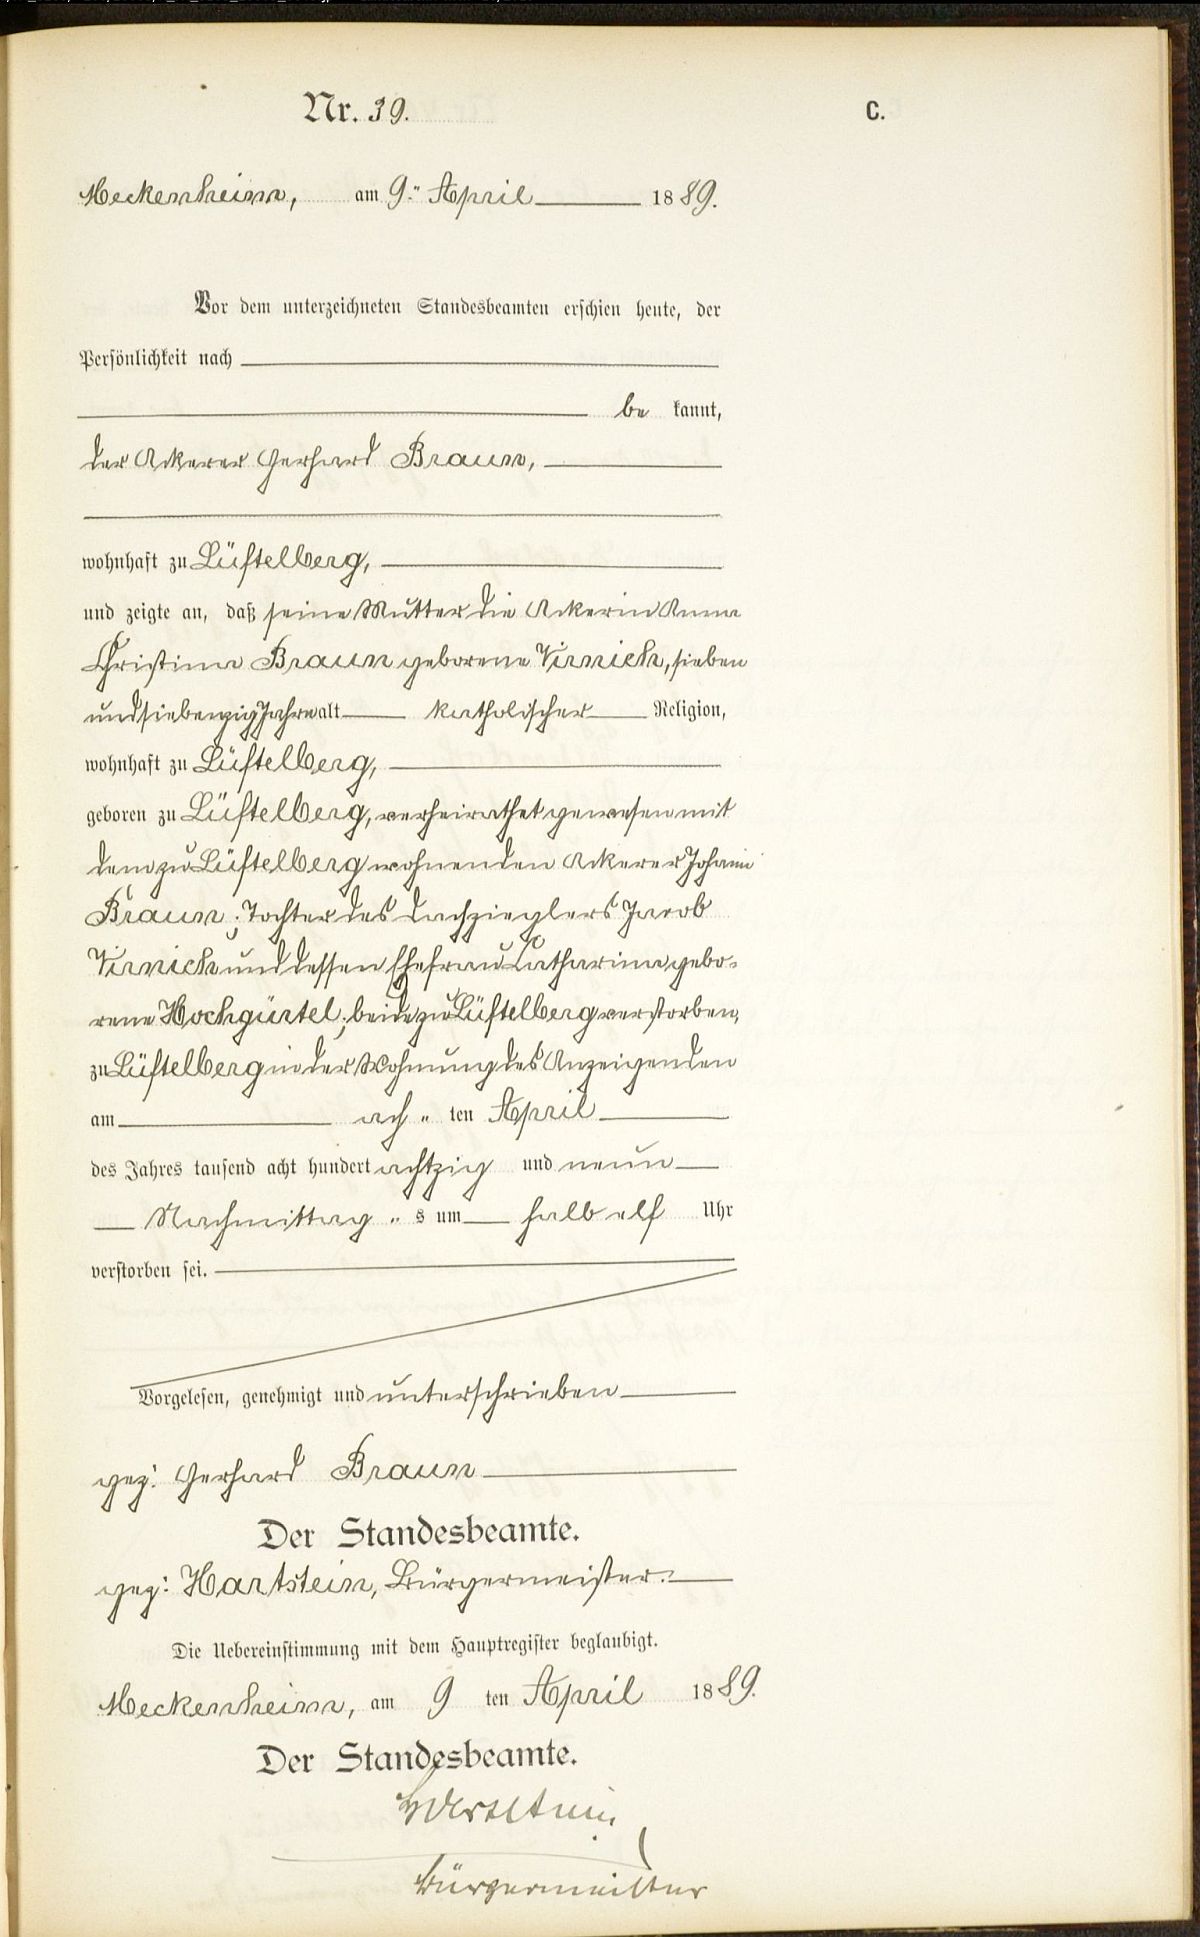 Nr. 39.
C.
Meckenheim, am 9ten April 1889.
Vor dem unterzeichneten Standesbeamten erschien heute, der
Persönlichkeit nach
be kannt,
der Ackerer Gerhard Braun,
wohnhaft zu Lüftelberg,
und zeigte an, daß seine Mutter die Ackerin Anna
Christina Braun geborene Virnich, sieben
undsiebenzig Jahre alt katholischer Religion,
wohnhaft zu Lüftelberg,
geboren zu Lüftelberg, verheirathet gewesen mit
dem zu Lüftelberg wohnenden Ackerer Johann
Braun; Tochter des Dachzieglers Jacob
Virnich und dessen Ehefrau Catharina gebo-
rene Hochgürtel; beide zu Lüftelberg verstorben,
zu Lüftelberg in der Wohnung des Anzeigenden
am ach " ten April
des Jahres tausend acht hundert achtzig und neun
Nachmittag " s um halb elf Uhr
verstorben sei.
Vorgelesen, genehmigt und unterschrieben
gez: Gerhard Braun
Der Standesbeamte.
gez: Hartstein, Bürgermeister.
Die Uebereinstimmung mit dem Hauptregister beglaubigt.
Meckenheim, am 9 ten April 1889.
Der Standesbeamte.
Hartstein
Bürgermeister